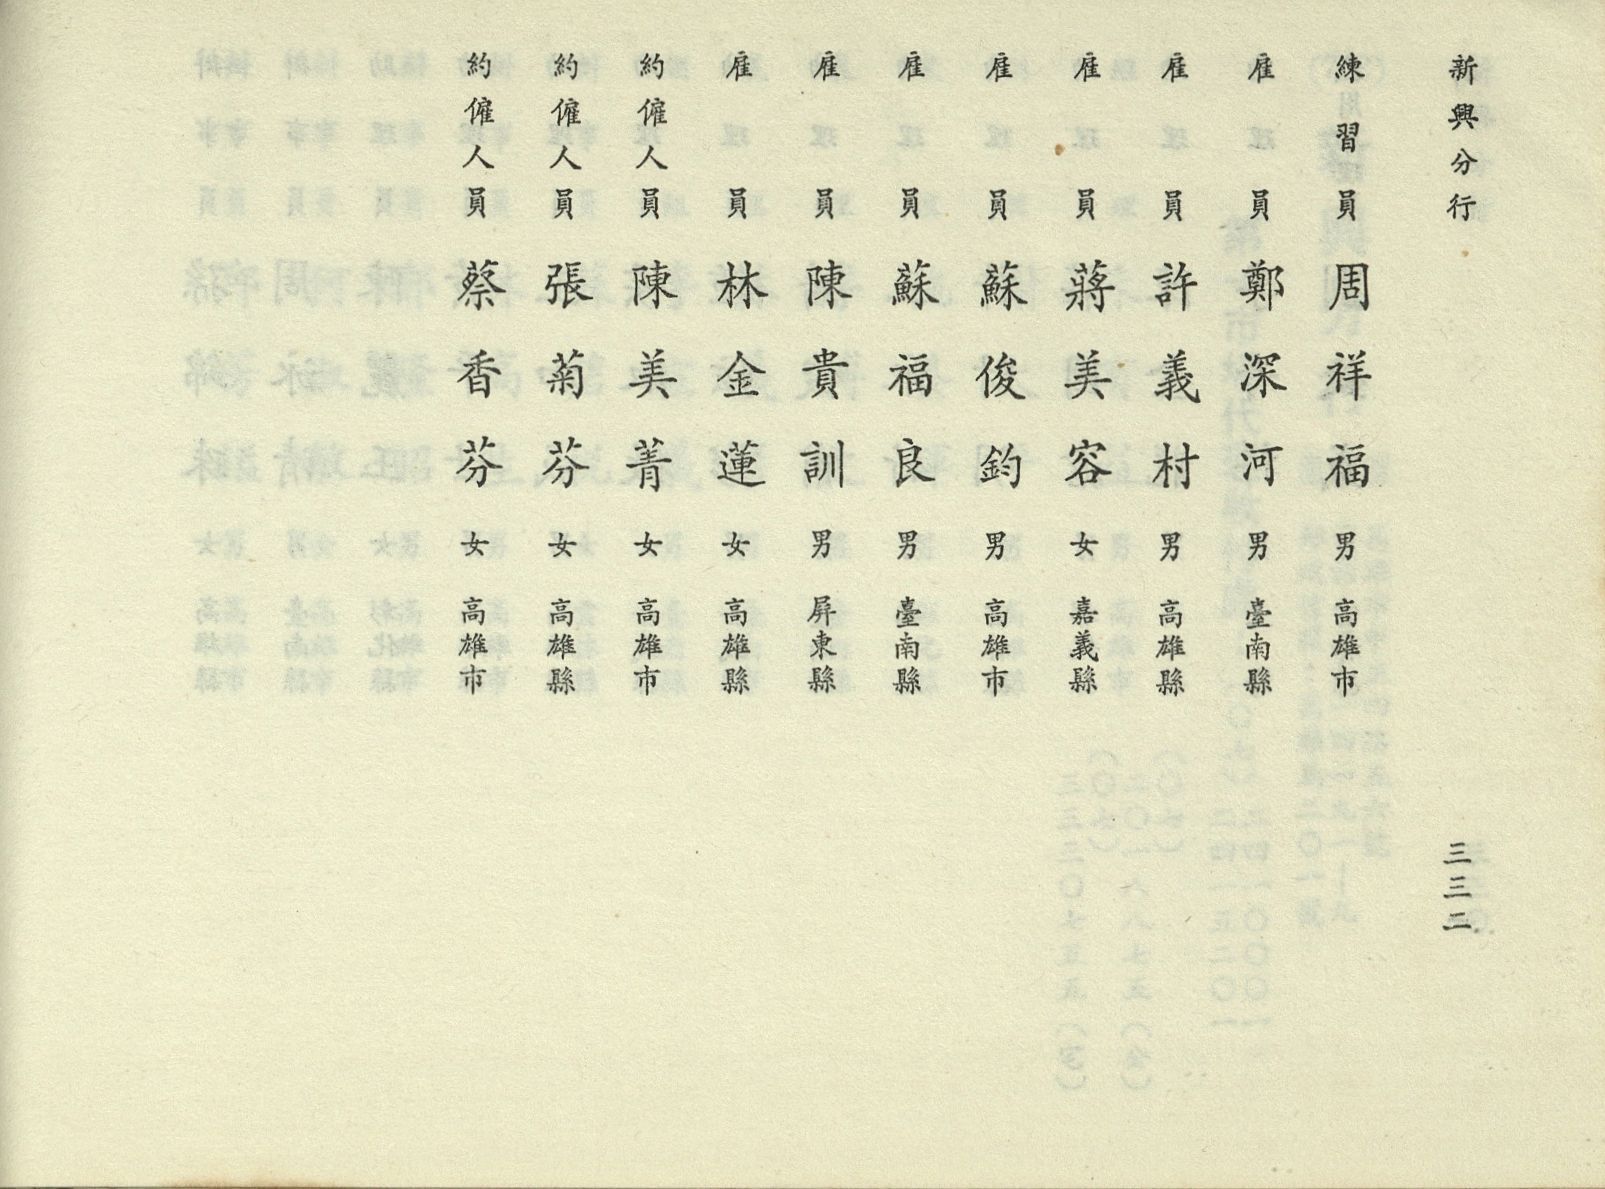 新興分行
練習員 周祥福 男 高雄市
雇員 鄭深河 男 臺南縣
雇員 許義村 男 高雄縣
雇員 蔣美容 女 嘉義縣
雇員 蘇俊鈞 男 高雄市
雇員 蘇福良 男 臺南縣
雇員 陳貴訓 男 屏東縣
雇員 林金蓮 女 高雄縣
約僱人員 陳美菁 女 高雄市
約僱人員 張菊芬 女 高雄縣
約僱人員 蔡香芬 女 高雄市
三三二